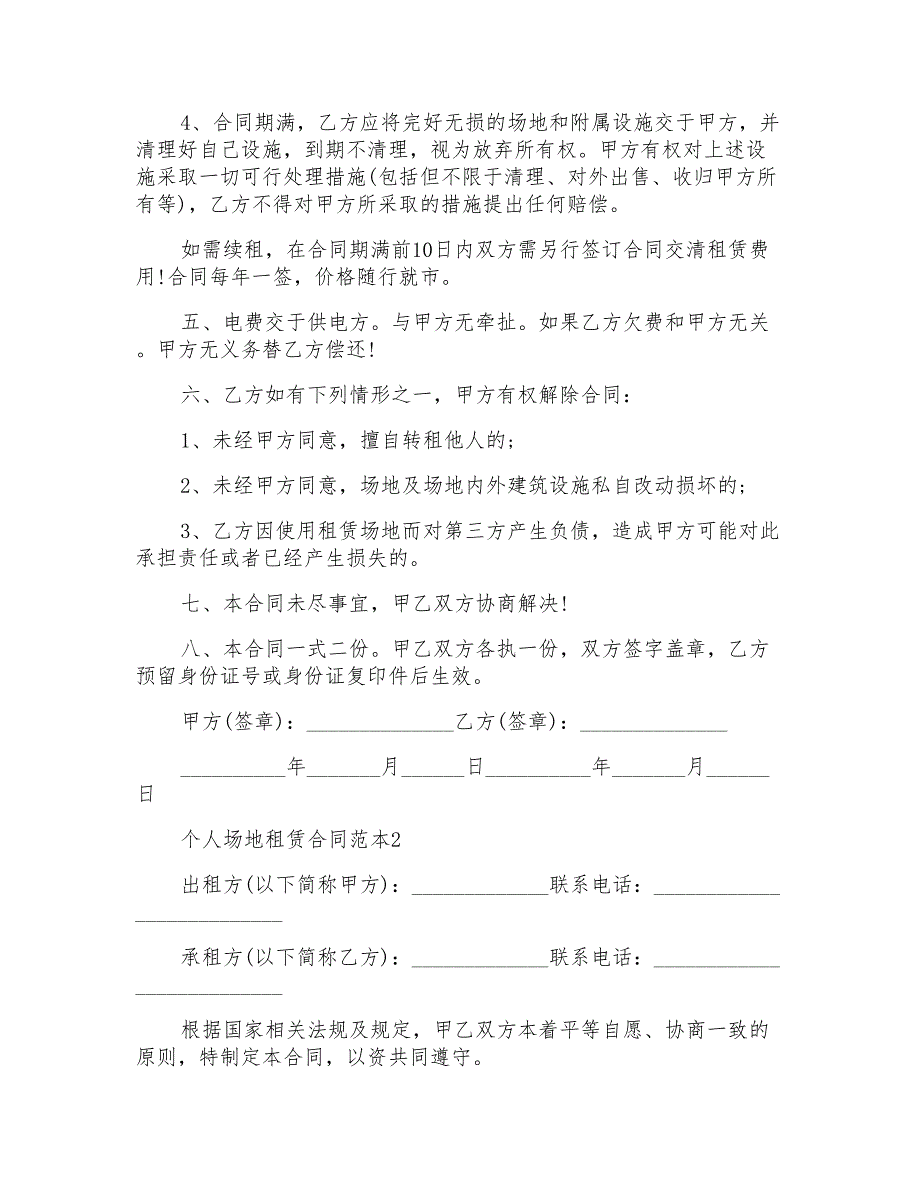 4、合同期满，乙方应将完好无损的场地和附属设施交于甲方，并
清理好自己设施，到期不清理，视为放弃所有权。甲方有权对上述设
施采取一切可行处理措施(包括但不限于清理、对外出售、收归甲方所
有等)，乙方不得对甲方所采取的措施提出任何赔偿。
如需续租，在合同期满前10日内双方需另行签订合同交清租赁费
用!合同每年一签，价格随行就市。
五、电费交于供电方。与甲方无牵扯。如果乙方欠费和甲方无关
。甲方无义务替乙方偿还!
六、乙方如有下列情形之一，甲方有权解除合同：
1、未经甲方同意，擅自转租他人的;
2、未经甲方同意，场地及场地内外建筑设施私自改动损坏的;
3、乙方因使用租赁场地而对第三方产生负债，造成甲方可能对此
承担责任或者已经产生损失的。
七、本合同未尽事宜，甲乙双方协商解决!
八、本合同一式二份。甲乙双方各执一份，双方签字盖章，乙方
预留身份证号或身份证复印件后生效。
甲方(签章)：______________乙方(签章)：______________
__________年_______月______日__________年_______月______
日
个人场地租赁合同范本2
出租方(以下简称甲方)：_____________联系电话：____________
______________
承租方(以下简称乙方)：_____________联系电话：____________
______________
根据国家相关法规及规定，甲乙双方本着平等自愿、协商一致的
原则，特制定本合同，以资共同遵守。